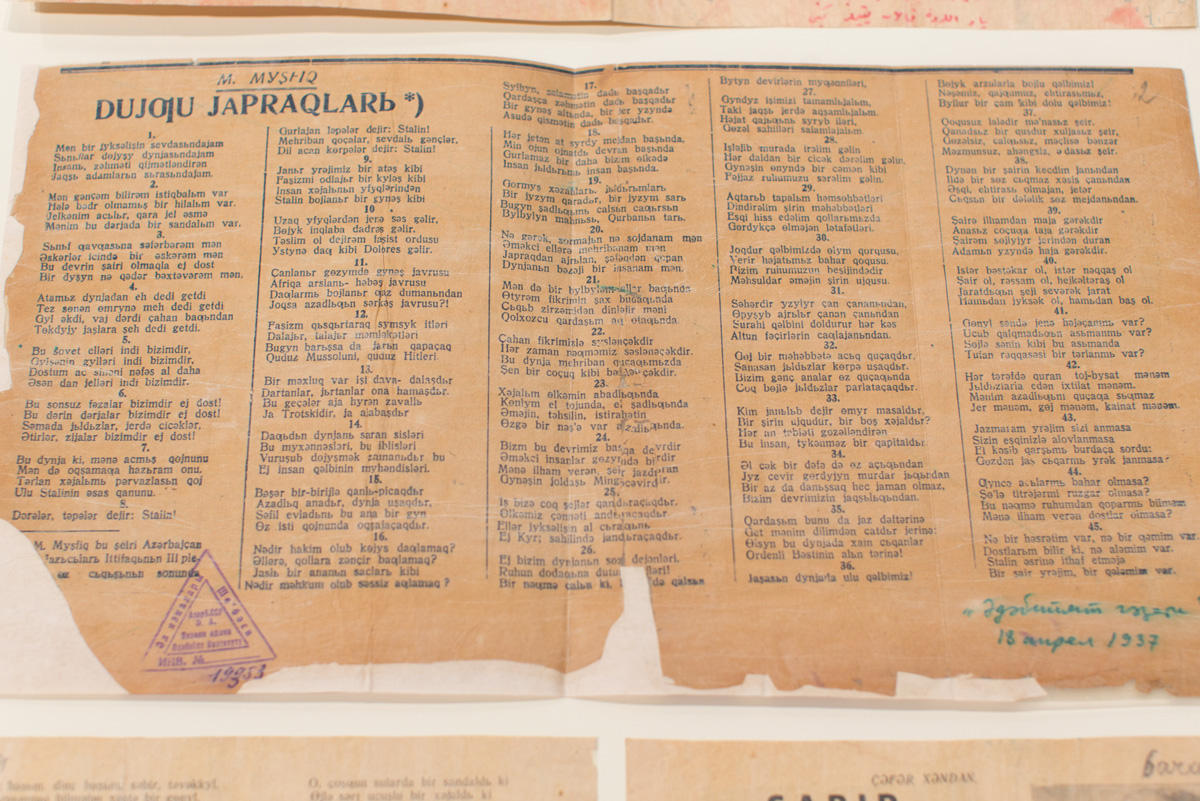 M. MYSFIQ
DUJƢU JAPRAQLARЬ *)
1.
Mən bir jyksəlişin sevdasьndajam
Sьnьflar dojyşy dynjasьndajam
Insanь, zəhməti qijmətləndirən
Jaqşь adamlarьn sьrasьndajam.
2.
Mən gənçəm bilirəm istiqbalьm var
Hələ bədr olmamьş bir hilalьm var.
Jelkənim acьlьr, qara jel əsmə
Mənim bu dərjada bir sandalьm var.
3.
Sьnьf qavqasьna səfərbərəm mən
Əskərlər icində bir əskərəm mən
Bu devrin şairi olmaqla ej dost
Bir dyşyn nə qədər bəxtəvərəm mən.
4.
Atamьz dynjadan eh dedi getdi
Tez sənən emryne meh dedi getdi
Gyl əkdi, vaj dərdi çahan baqьndan
Təkdyjy jaşlara şeh dedi getdi.
5.
Bu Sovet elləri indi bizimdir,
zylləri indi bizimdir,
Dostum ac sinəni nəfəs al daha
Əsən dan jelləri indi bizimdir.
6.
Bu sonsuz fəzalar bizimdir ej dost!
Bu dərin dərjalar bizimdir ej dost!
Səmada jьldьzlar, jerdə cicəklər,
Ətirlər, zijalar bizimdir ej dost!
7.
Bu dynja ki, mənə acmьş qojnunu
Mən də oqşamaqa hazьram onu.
Tərlan xəjalьmь pərvazlasьn qoj
Ulu Stalinin əsas qanunu.
8.
Dərələr, təpələr dejir: Stalin!
M. Mysfiq bu şeiri Azərbajçan
Jazьcьlarь Ittifaqьnьn III ple-
cьqьşьnьn sonunda
Gurlajan ləpələr dejir: Stalin!
Mehriban qoçalar, sevdalь gənçlər,
Dil acan kərpələr dejir: Stalin!
9.
Janьr yrəjimiz bir atəş kibi
Faşizmi odlajьr bir kyləş kibi
Insan xəjalьnьn yfyqlərindən
Stalin bojlanьr bir gynəş kibi
10
Uzaq yfyqlərdən jerə səs gəlir,
Bəjyk inqlaba dadrəs gəlir.
Təslim ol dejirəm faşist ordusu
Ystynə daq kibi Dolores gəlir.
11.
Çanlanьr gəzymdə gynəş javrusu
Afriqa arslanь- həbəş javrusu
Daqlarmь bojlanьr qaz dumanьndan
Joqsa azadlьqьn sərkəş javrusu?!
12.
Faşizm qьşqьrtaraq symsyk itləri
Dalajьr, talajьr məmləkətləri
Bugyn barьşsa da jarьn qapaçaq
Quduz Mussoluni, quduz Hitleri.
13.
Bir məxluq var işi dava- dalaşdьr
Dartanlar, jьrtanlar ona hamaşdьr.
Bu geçələr aja hyrən zavallь
Ja Trotskidir, ja alabaşdьr
14.
Daqьdьn dynjanь saran sisləri
Bu myxənnəsləri, bu iblisləri
Vuruşub dojyşmək zamanьdьr bu
Ej insan qəlbinin myhəndisləri.
15.
Bəşər bir-birijlə qanlь-pьcaqdьr
Azadlьq anadьr, dynja uşaqdьr,
Səfil evladьnь bu ana bir gyn
Əz isti qojnunda oqşajaçaqdьr.
16.
Nədir hakim olub kəjys daqlamaq?
Əllərə, qollara zənçir baqlamaq?
Jaslь bir ananьn saclarь kibi
Nədir məhkum olub səssiz aqlamaq?
17.
Sylhyn, səlamətin dadь başqadьr
Qardaşça zəhmətin dadь başqadьr
Bir gynəş altьnda, bir jer yzyndə
Asudə qismətin dadь başqadьr.
18.
Hər jetən at syrdy mejdan başьnda,
Min ojun ojnatdь devran başьnda
Gurlamaz bir daha bizim əlkədə
Insan jьldьrьmь insan başьnda.
19.
Gərmyş xəzanlarь, jьldьrьmlarь
Bir lyzym qaradьr, bir lyzym sarь
Bugyn şadlьqьmь calsьn caqьrsьn
Bylbylyn mahnьsь, Qurbanьn tarь.
20.
Nə gərək, sormajьn nə sojdanam mən
Əməkci ellərə mehribanam mən
Japraqdan ajrьlan, şələdən qopan
Dynjanьn bəzəji bir insanam mən.
21.
Mən də bir bylbyləm ellər baqьnda
Ətyrəm fikrimin şax budaqьnda
Cьqьb zirzəmidən dinləjir məni
Qolxozcu qardaşьm aq otaqьnda.
22.
Çahan fikrimizlə sysləneçəkdir.
Hər zaman rənqimiz səslənəçəkdir.
Bu dynja mehriban quçaqьmьzda
Şen bir coçuq kibi bəslənəçəkdir.
23.
Xəjalьm əlkəmin abadlьqьnda
Kənlym el tojunda, el şadlьqьnda
Əməjin, təhsilin, istirahətin
Əzgə bir nəş'ə var azadlьqьnda.
24.
Bizm bu devrimiz başqa devrdir
Əməkci insanlar gəzyndə birdir
Mənə ilham verən, şeir jazdьran
Gynəşin joldaşь Mingəcevirdir.
25.
Iş bizə coq şeylər qandьraçaqdьr.
Əlkəmiz çənnəti andьraçaqdьr
Ellər jyksəlişin al cьraqьnь
Ej Kyr; sahilində jandьraçaqdьr.
26.
Ej bizim dynjanьn səz dejənləri.
Ruhun dodaqьna
Bir nəqmə calьn ki, də qalsьn
Bytyn devirlərin myqənniləri,
27.
Gyndyz işimizi tamamlajalьm,
Taki jaqşь jerdə aqşamlajalьm.
Həjat qajьqьnь syryb iləri,
Gəzəl sahilləri salamlajalьm
28.
Işləjib murada irəlim gəlin
Hər daldan bir cicək dərəlim gəlin.
Gynəşin ənyndə bir cəmən kibi
Fəjjaz ruhumuzu sərəlim gəlin.
29.
Aqtarьb tapalьm həmsəhbətləri
Dindirəlim şirin məhəbbətləri
Eşqi hiss edəlim qollarьmьzda
Gərdykçə olməjən lətafətləri.
30.
Joqdur qəlbimizdə əlyn qorqusu,
Verir həjatьmьz bahar qoqusu.
Bizim ruhumuzun beşijindədir
Məhsuldar əməjin şirin ujqusu.
31.
Səhərdir yzylyr çan çananьndan,
Əpyşyb ajrьlьr çanan çanьndan
Surahi qəlbini doldurur hər kəs
Altun fəçirlərin caqlajanьndan.
32.
Qoj bir məhəbbətə acьq quçaqdьr,
Sanasan jьldьzlar kərpə uşaqdьr.
Bizim gənç analar əz quçaqьnda
Coq bəjlə jьldьzlar parlataçaqdьr.
33.
Kim janьlьb dejir əmyr masaldьr,
Bir şirin ujqudur, bir boş xəjaldьr?
Hər an təbiəti gəzəlləndirən
Bu insan, tykənməz bir qapitaldьr.
34.
Əl cək bir dəfə də əz açьqьndan
Jyz cevir gərdyjyn murdar jьqьndan
Bir az da danьşsaq hec jaman olmaz,
Bizim devrimizin jaqşьlьqьndan.
35.
Qardaşьm bunu da jaz dəftərinə
Get mənim dilimdən catdьr jerinə:
Əlsyn bu dynjada xain cьqanlar
Ordenli Bəstinin alьn tərinə!
36.
Jaşasьn dynjada ulu qəlbimiz!
Bəjyk arzularla bojlu qəlbimiz!
Nəşəmiz, qajqьmьz, ehtirasьmьz,
Byllur bir çam kibi dolu qəlbimiz!
37.
Qoqusuz lalədir mə'nasьz şeir,
Qanadsьz bir quşdur xuljasьz şeir,
Gəzəlsiz, calqьsьz, məçlisə bənzər
Məzmunsuz, ahəngsiz, ədasьz şeir.
38.
Dynən bir şairin kecdim janьndan
Ildə bir səz cьqmaz xəsis çanьndan
Eşqi, ehtirasь olmajan, jetər
Cьqsьn bir dəlilik səz mejdanьndan.
39.
Şairə ilhamdan maja gərəkdir
Anasьz coçuqa taja gərəkdir
Şairəm səjləjir jerindən duran
Adamьn yzyndə həja gərəkdir.
40.
Istər bəstəkar ol, istər nəqqaş ol
Şair ol, rəssam ol, hejkəltəraş ol
Jaratdьqьn şeji sevərək jarat
Hamьdan jyksək ol, hamьdan baş ol.
41.
Gənyl səndə jenə hələçanmь var?
Uçub qalqьmadьqьn asьmanmь var?
Səjlə nəqmin kibi bu asьmanda
Tufan rəqqasəsi bir tərlanmь var?
42.
Hər tərəfdə quran toj-bysat mənəm
Jьldьzlarla edən ixtilat mənəm.
Mənim azadlьqьnь quçaqa sьqmaz
Jer mənəm, gəj mənəm, kainat mənəm.
43.
Jazmaram yrəjim sizi anmasa
Sizin eşqinizlə alovlanmasa
El kəsib qarşьmь burdaça sordu:
Gəzdən jaş cьqarmь yrək janmasa?
44.
Qьnça acьlarmь bahar olmasa?
Şə'lə titrəjərmi ruzgar olmasa?
Bu nəqmə ruhumdan qoparmь bilməm
Mənə ilham verən dostlar olmasa?
45.
Nə bir həsrətim var, nə bir qəmim var.
Dostlarьm bilir ki, nə aləmim var.
Stalin əsrinə ithaf etməjə
Bir şair yrəjim, bir qələmim var.
2
„Әдәбиjjат гәзети"
18 апрел 1937
Әл jазмалары Шө'бәси
Азәрб. ССР
Э. А.
Низами адына
ИНВ. №
19953
О, çoşqun sularda bir sandaldь ki
ÇƏFƏR XƏNDAN.
SABIR